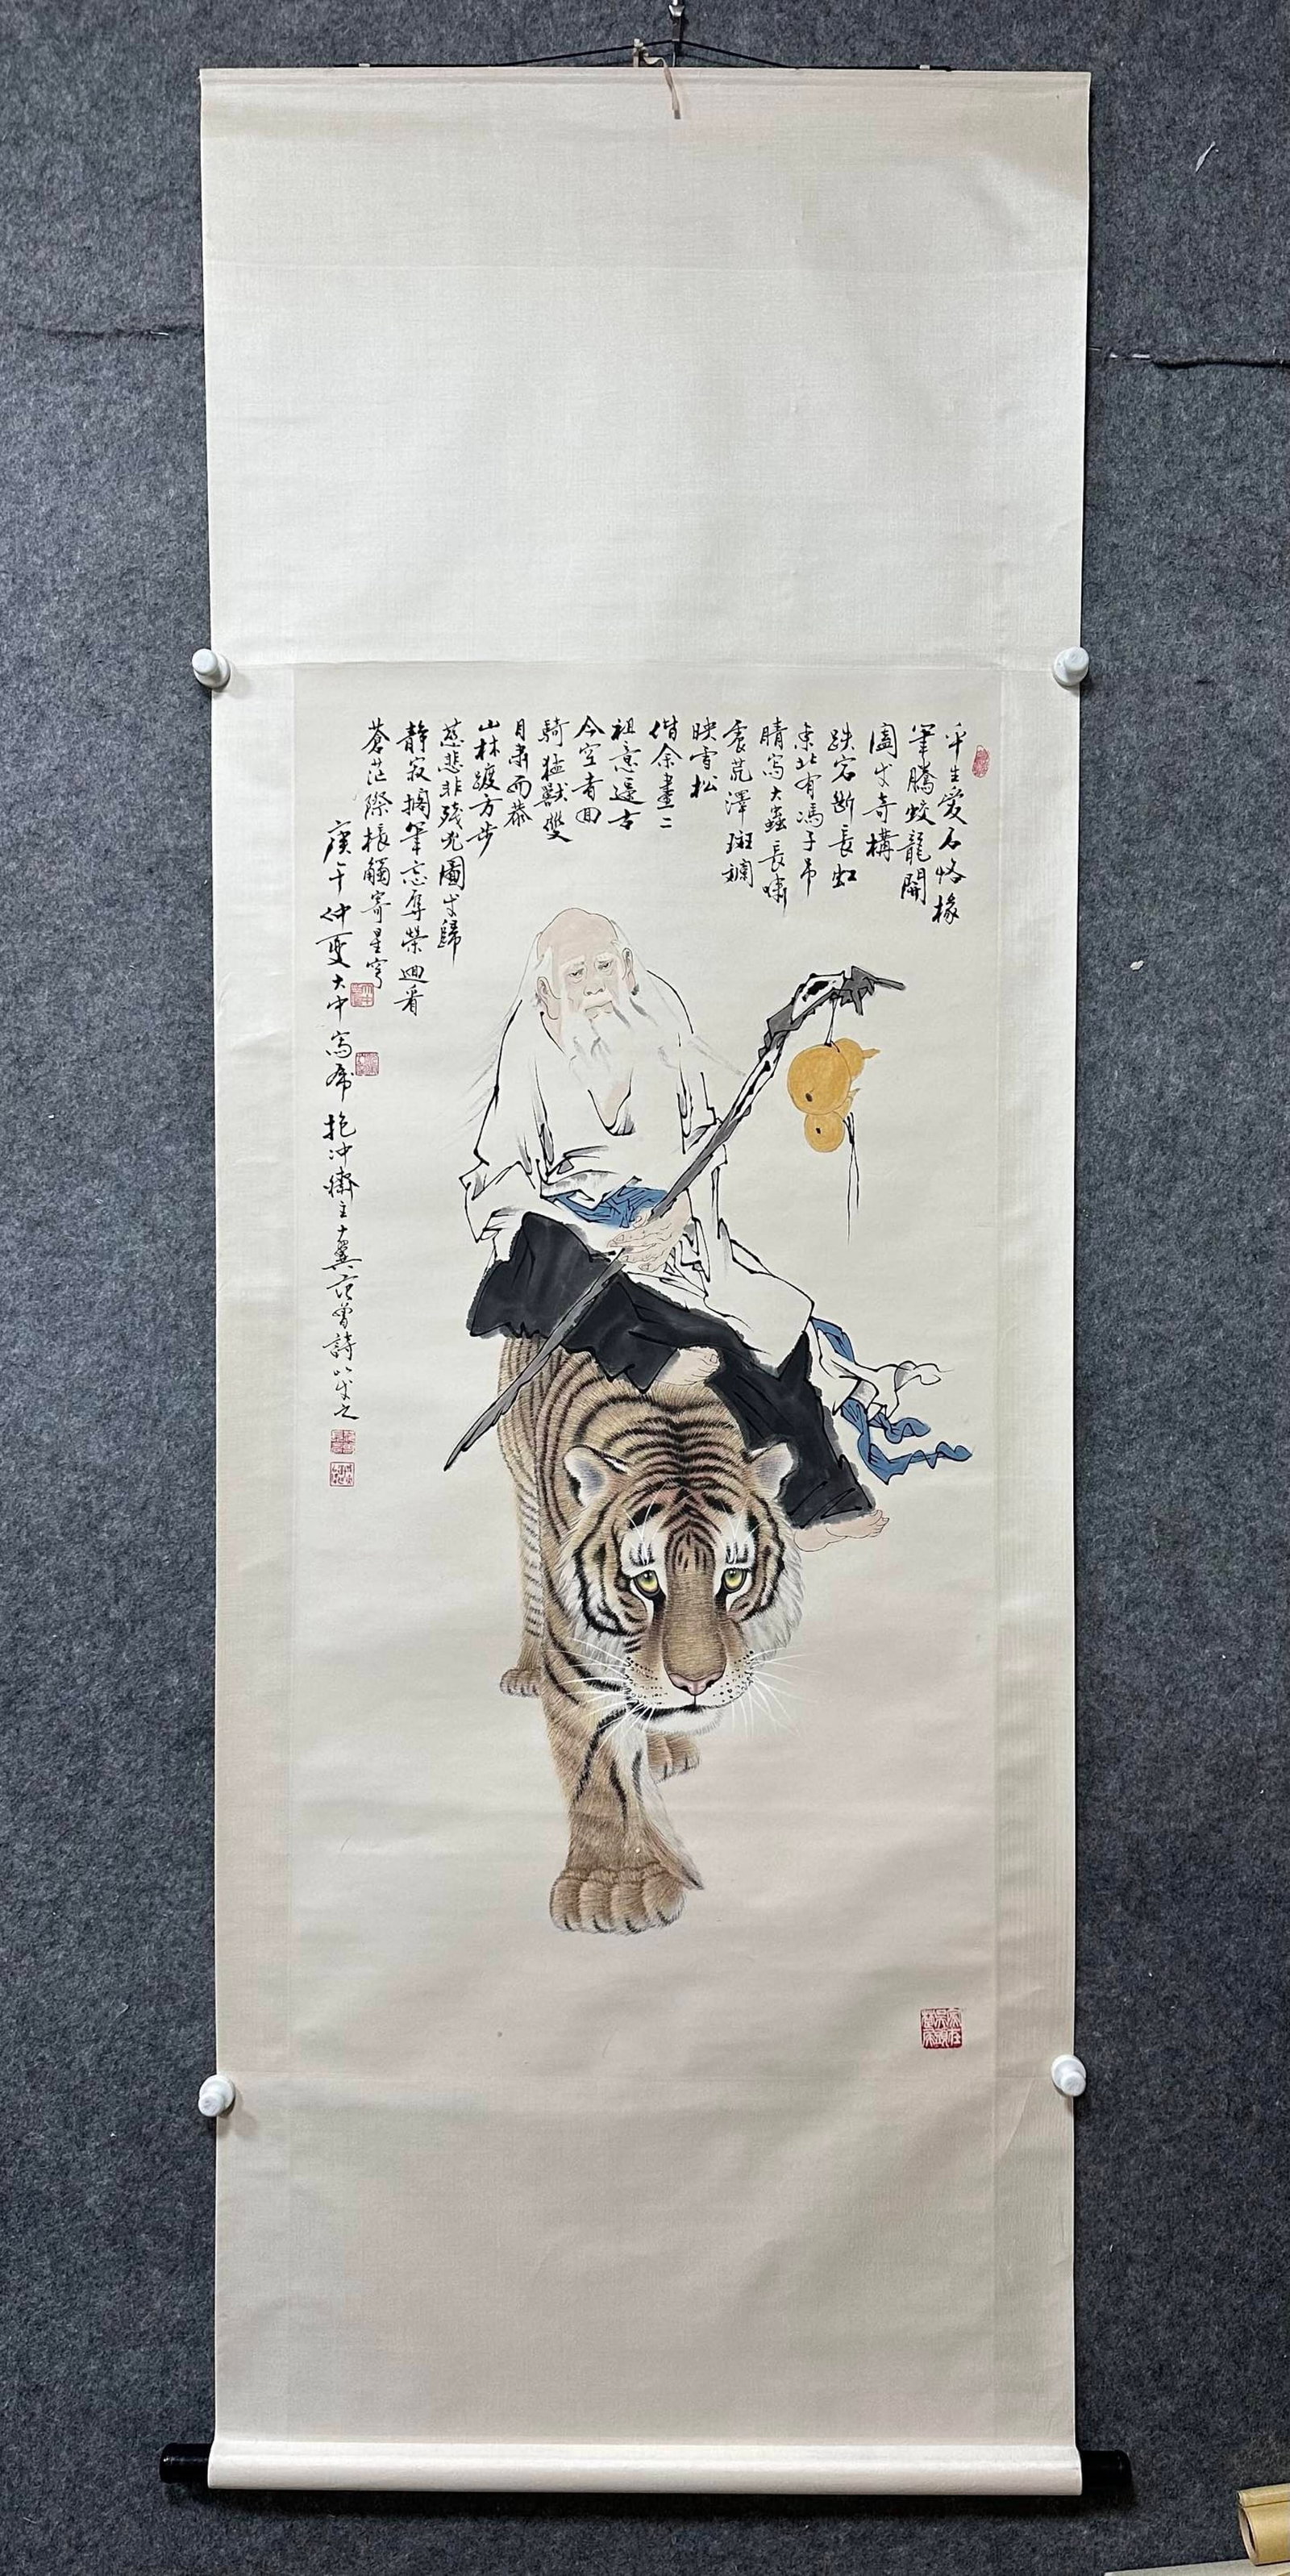 平生愛石恪椽
筆騰蛟龍開
圖成奇構
跌宕斷長虹
東北有馮子弔
睛寫大蟲長嘯
震荒澤斑斕
映雪松
偕余畫二
祖意邈古
今空者回
騎猛獸雙
目肅而恭
山林踱方步
慈悲非殘兇圖成歸
靜寂擱筆忘辱榮迴看
蒼茫際棖觸寄星穹
庚午仲夏大中寫虎抱沖齋主十翼范曾詩以成之